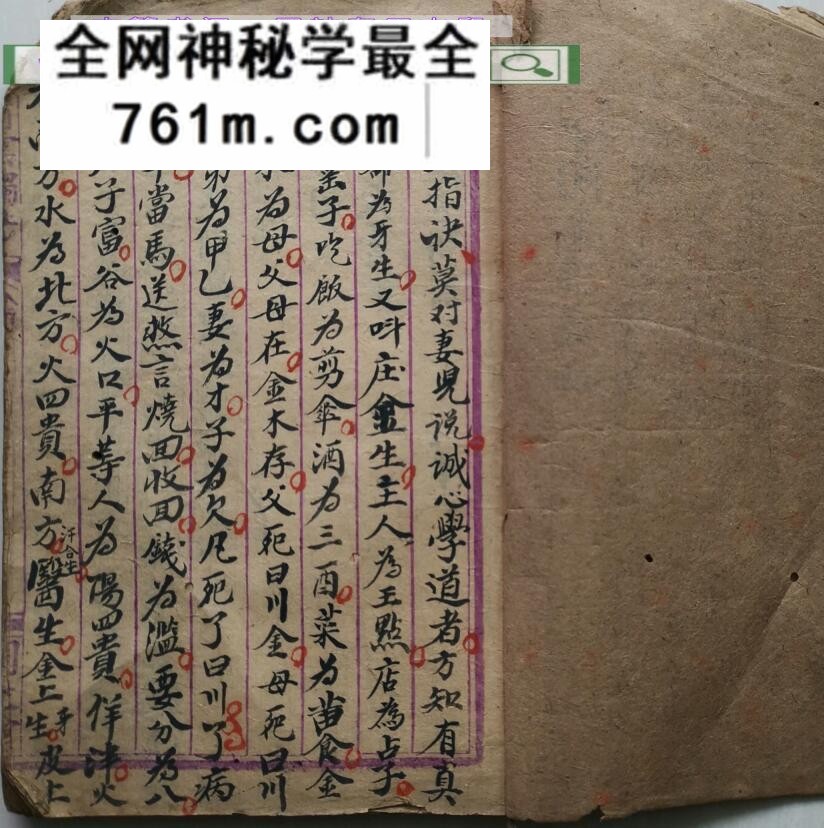 全网神秘学最全
761m.com
指诀莫对妻児说诚心學道者方知有真
為牙生又呌庄金生主人為王點店為占子
窑子吃飯為剪傘酒為三酉菜為苗食金
為母父母在金木存父死曰川金母死曰川
弟為甲乙妻為才子為欠凡死了曰川了病
當馬送煞言燒回收回錢為滥要分為八
子富谷為火口平等人為陽四貴佯津火
方水為北方火四貴南方醫生汗合生金上生手皮上